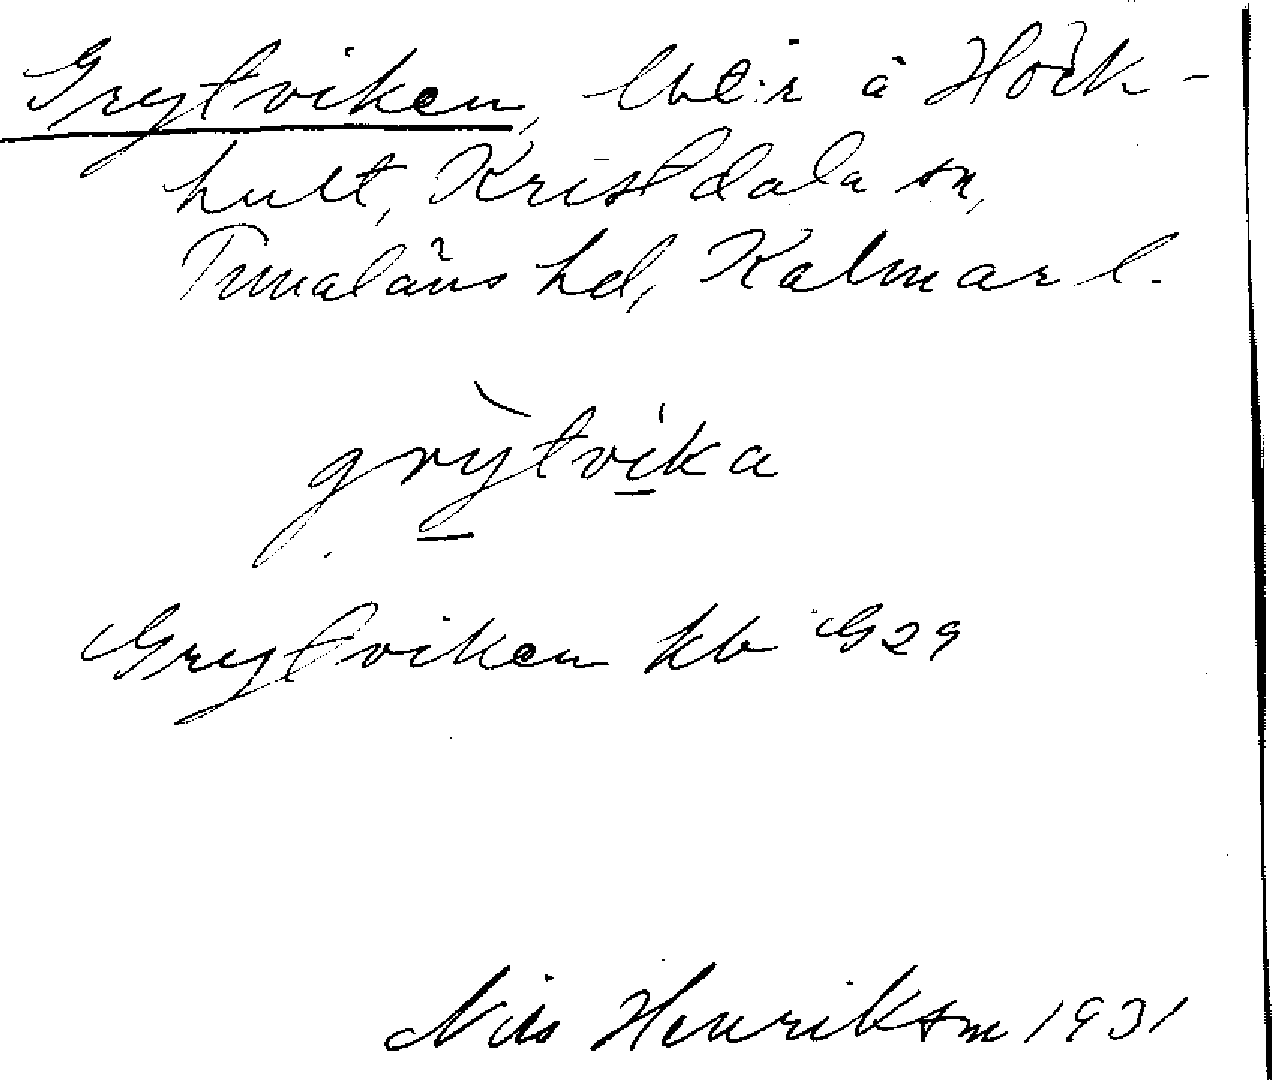 Grytviken, lht:r å Höck-
hult, Kristdala sn,
Tunaläns hd, Kalmar l.
grỳtvíka
Grytviken kb G29
Nils Henriksm 1931